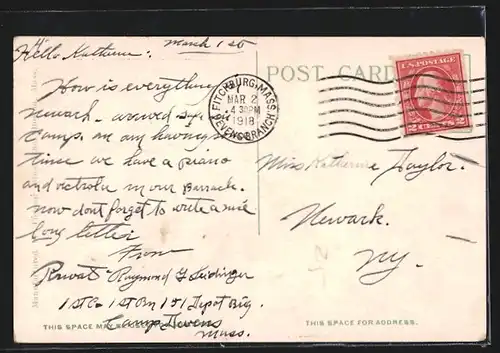 Hello Katherine: March 1st
POST CARD
U.S. POSTAGE
FITCHBURG, MASS.
MAR 2
4 30 PM
1918
DEVENS BRANCH
How is everything
Newark. around
Camp. are having
time we have a piano
and victrola in our Barrack.
now dont forget to write a nice
long letter
From
Privat Raymond G
1st Co 1st Bn 151 Depot Brig.
Camp Devens
Mass.
Miss Katherine Taylor.
Newark.
N.Y.
THIS SPACE MAY
THIS SPACE FOR ADDRESS.